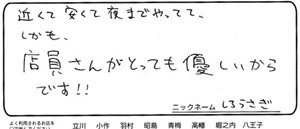 近くて安くて夜までやってて、
しかも、
店員さんがとっても優しいから
です!!
ニックネーム しろうさぎ
よく利用されるお店を
立川 小作 羽村 昭島 青梅 高幡 堀之内 八王子